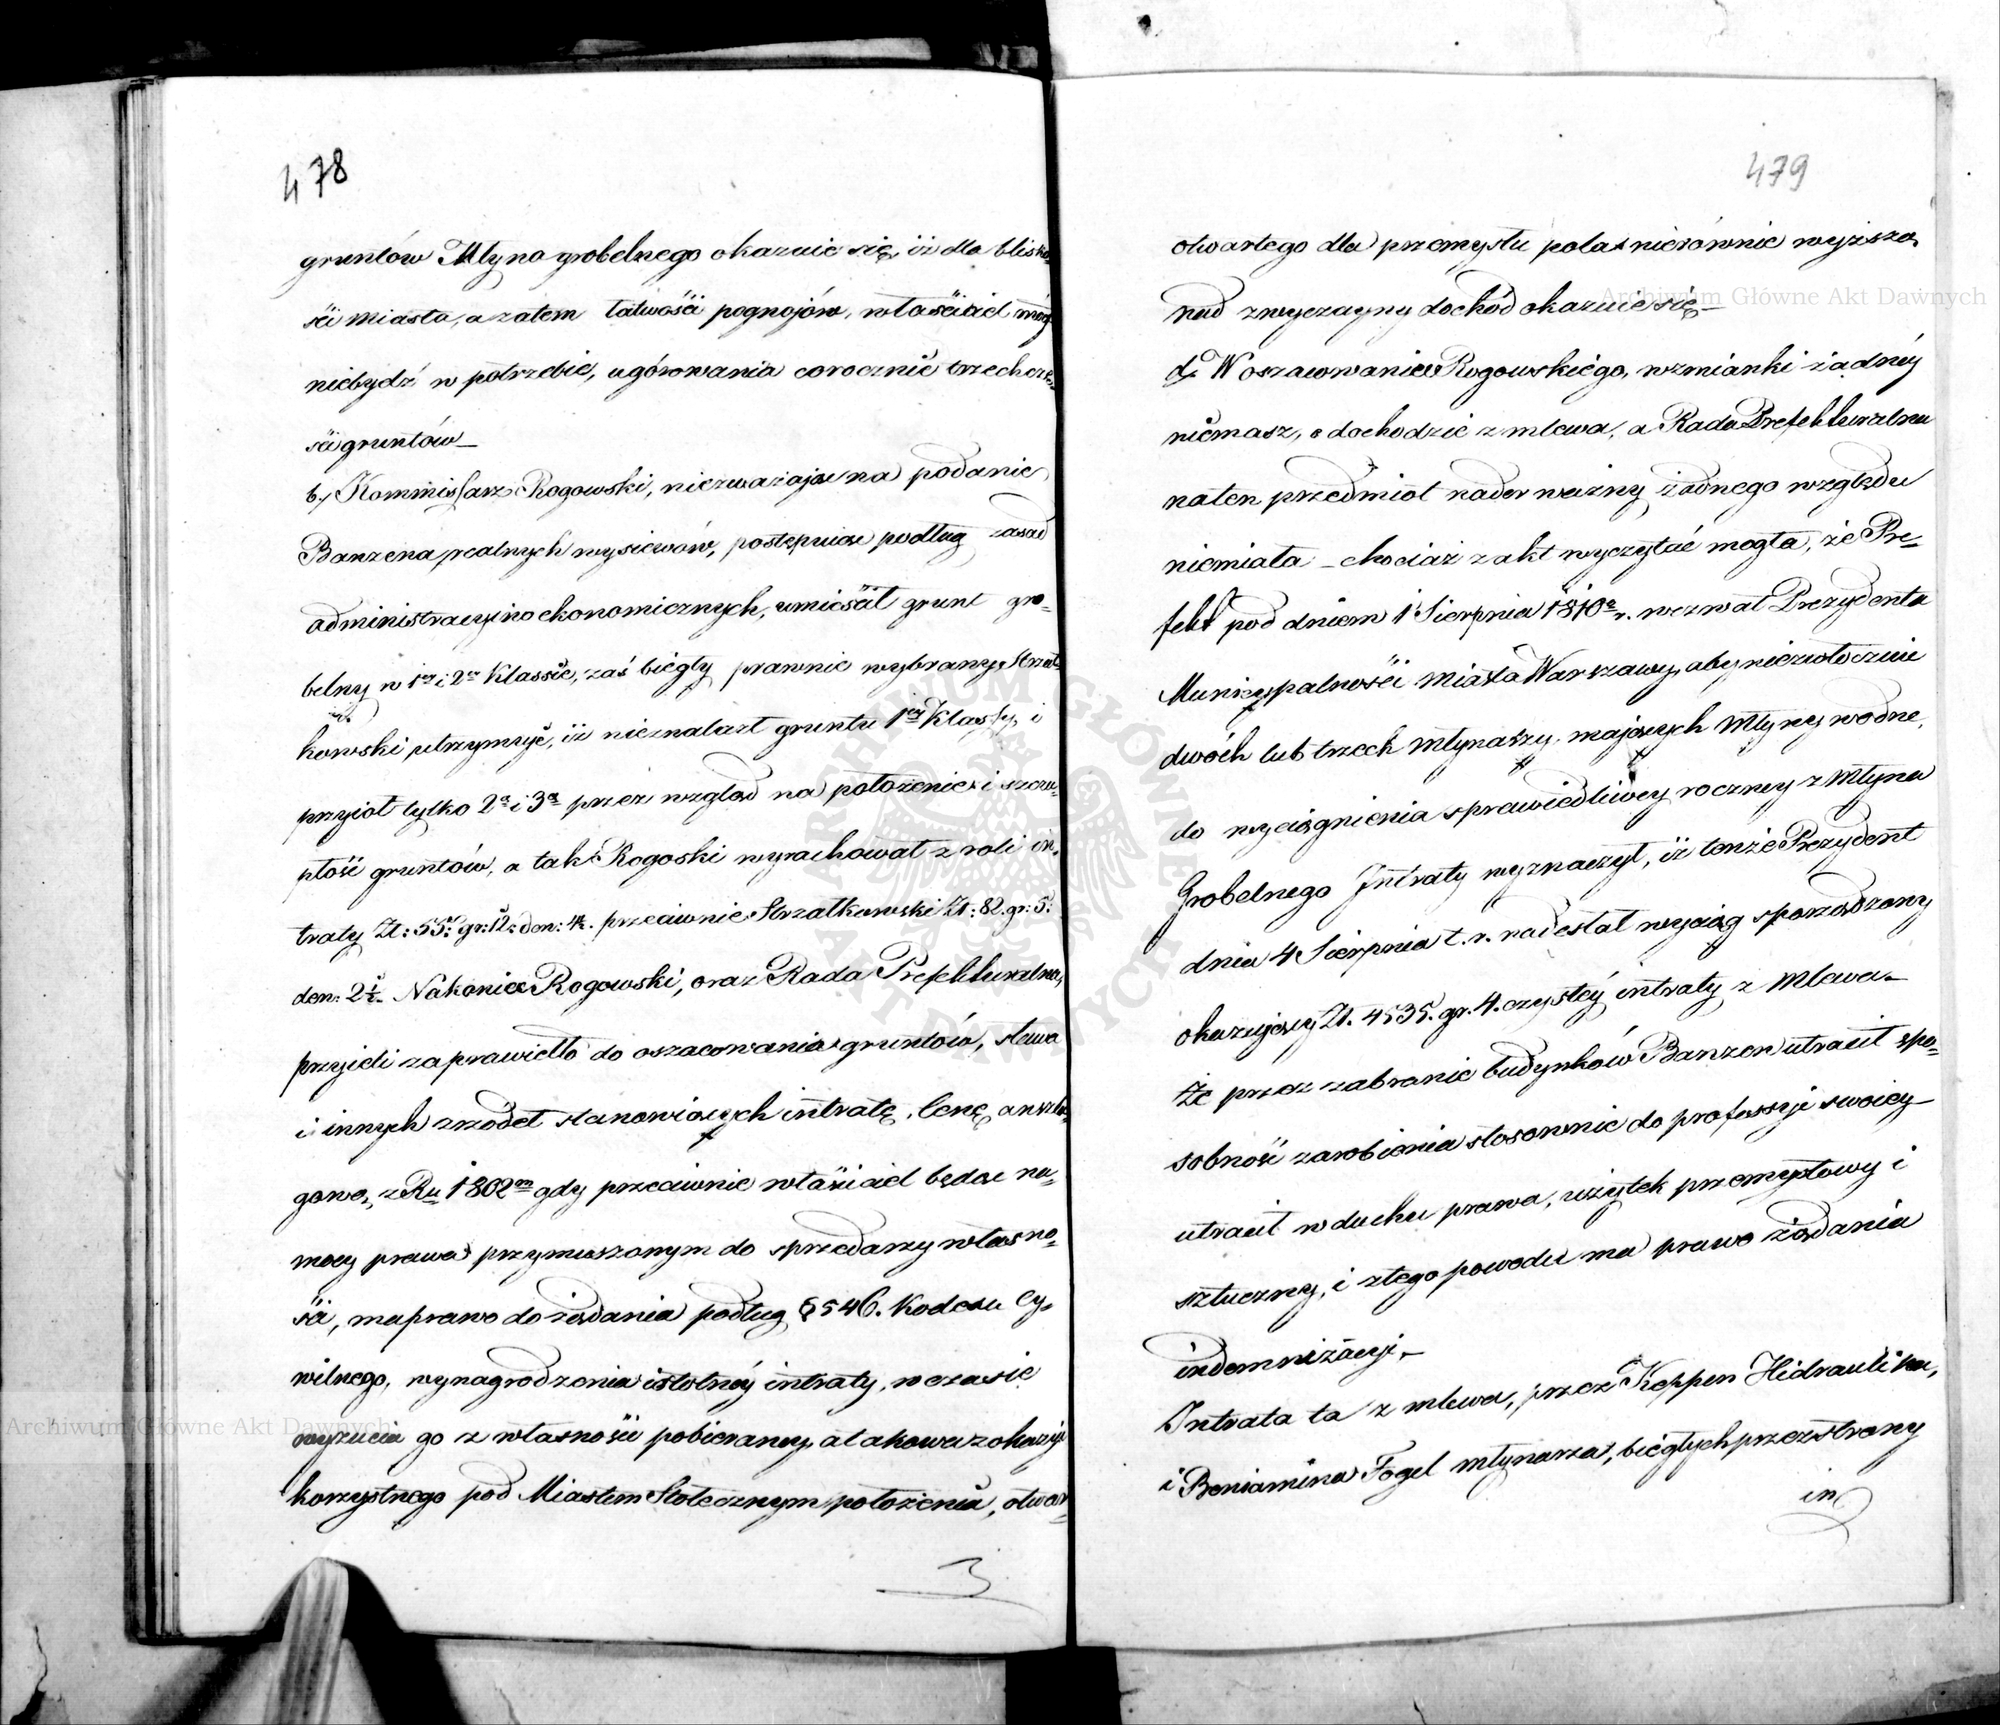 478
gruntów Młyna grobelnego okazuie się, iż dla blisko-
ści miasta, a zatem łatwości pognojów, właściciel mógł
niebydź w potrzebie, ugórowania corocznie trzech czę-
ści gruntów_
b, Kommissarz Rogowski, niezważaiąc na podanie
Banzena realnych wysiewów, postępuiąc podług zasad
administracyino ekonomicznych, umieścił grunt gro-
belny w 1ey i 2ey Klassie, zaś biegły prawnie wybrany Strzał-
kowski utrzymuje, iż nieznalazł gruntu 1ey Klassy, i
przyioł tylko 2ą i 3ą przez wzgląd na położenie i szczu-
płość gruntów, a tak Rogoski wyrachował z roli in-
traty Zł: 55: gr: 12: den: 4½. przeciwnie Strzałkowski Zł: 82. gr: 5:
den: 2½. Nakoniec Rogowski, oraz Rada Prefekturalna,
przyieli za prawidło do oszacowania gruntów, stawu
i innych zrzódeł stanowiących intratę, Cenę anszla-
gową, z Ru 1802m gdy przeciwnie właściciel będąc na
mocy prawa przymuszonym do sprzedarzy własno-
ści, ma prawo do żądania podług § 546. Kodexu Cy-
wilnego, wynagrodzenia istotnéy intraty, w czasie
wyzucia go z własności pobieraney, a takowa z okazyi
korzystnego pod Miastem Stołecznym położenia, otwar-
479
otwartego dla przemysłu pola, nierównie wyższa,
nad zwyczayny dochód okazuie się_
d, W oszacowaniu Rogowskiego, wzmianki żadnéy
niemasz, o dochodzie z mlewa, a Rada Prefekturalna
na ten przedmiot nader ważny żadnego względu
niemiała _ chociaż z akt wyczytać mogła, że Pre-
fekt pod dniem 1 Sierpnia 1810 r. wezwał Prezydenta
Municypalności miasta Warszawy, aby niezwłocznie
dwóch lub trzech młynarzy, maiących Młyny wodne,
do wyciągnienia sprawiedliwey roczney z Młyna
Grobelnego Intraty wyznaczył, iż tenże Prezydent
dnia 4 Sierpnia t. r. nadesłał wyciąg sporządzony
okazujący Zł. 4535. gr. 4. czystéy intraty z Mlewa_
Że przez zabranie budynków Banzen utracił spo-
sobność zarobienia stosownie do professyi swoiey_
utracił w duchu prawa, użytek przemysłowy i
sztuczny, i z tego powodu ma prawo żądania
indemnizacyi_
Intrata ta z mlewa, przez Keppen Hidraulika,
i Beniamina Fogel młynarza, biegłych przez strony
in